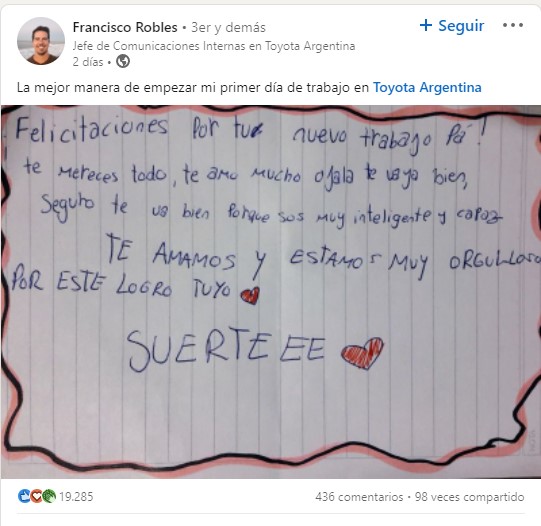 Francisco Robles • 3er y demás
+ Seguir
Jefe de Comunicaciones Internas en Toyota Argentina
2 días •
La mejor manera de empezar mi primer día de trabajo en Toyota Argentina
Felicitaciones Por tu nuevo trabajo Pá!
te mereces todo, te amo mucho ojala te vaya bien,
Seguro te va bien Porque sos muy inteligente y capaz
TE AMAMOS Y ESTAMOS MUY ORGULLOSO
POR ESTE LOGRO TUYO
SUERTE EE
19.285
436 comentarios • 98 veces compartido